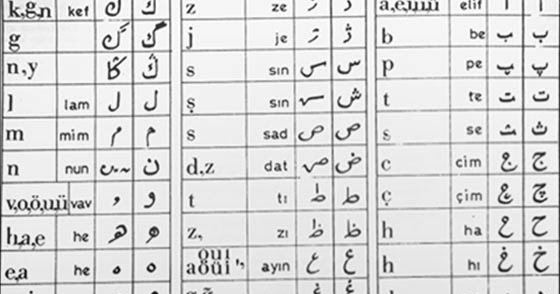 k,g,n kef ك ك
g گ گ
n,y ڭ ڭ
l lam ل ل
m mim م م
n nun ن ن
v,o,ö,u,ü vav و و
h,a,e he ه ه
e,a he ه ه
z ze ز ز
j je ژ ژ
s sın س س
ş sın ش ش
s sad ص ص
d,z dat ض ض
t tı ط ط
z, zı ظ ظ
a o ö u ü ı i ', ayın ع ع
غ غ
elif ا ا
b be ب ب
p pe پ پ
t te ت ت
s se ث ث
c cim ج ج
ç çim چ چ
h ha ح ح
h hı خ خ